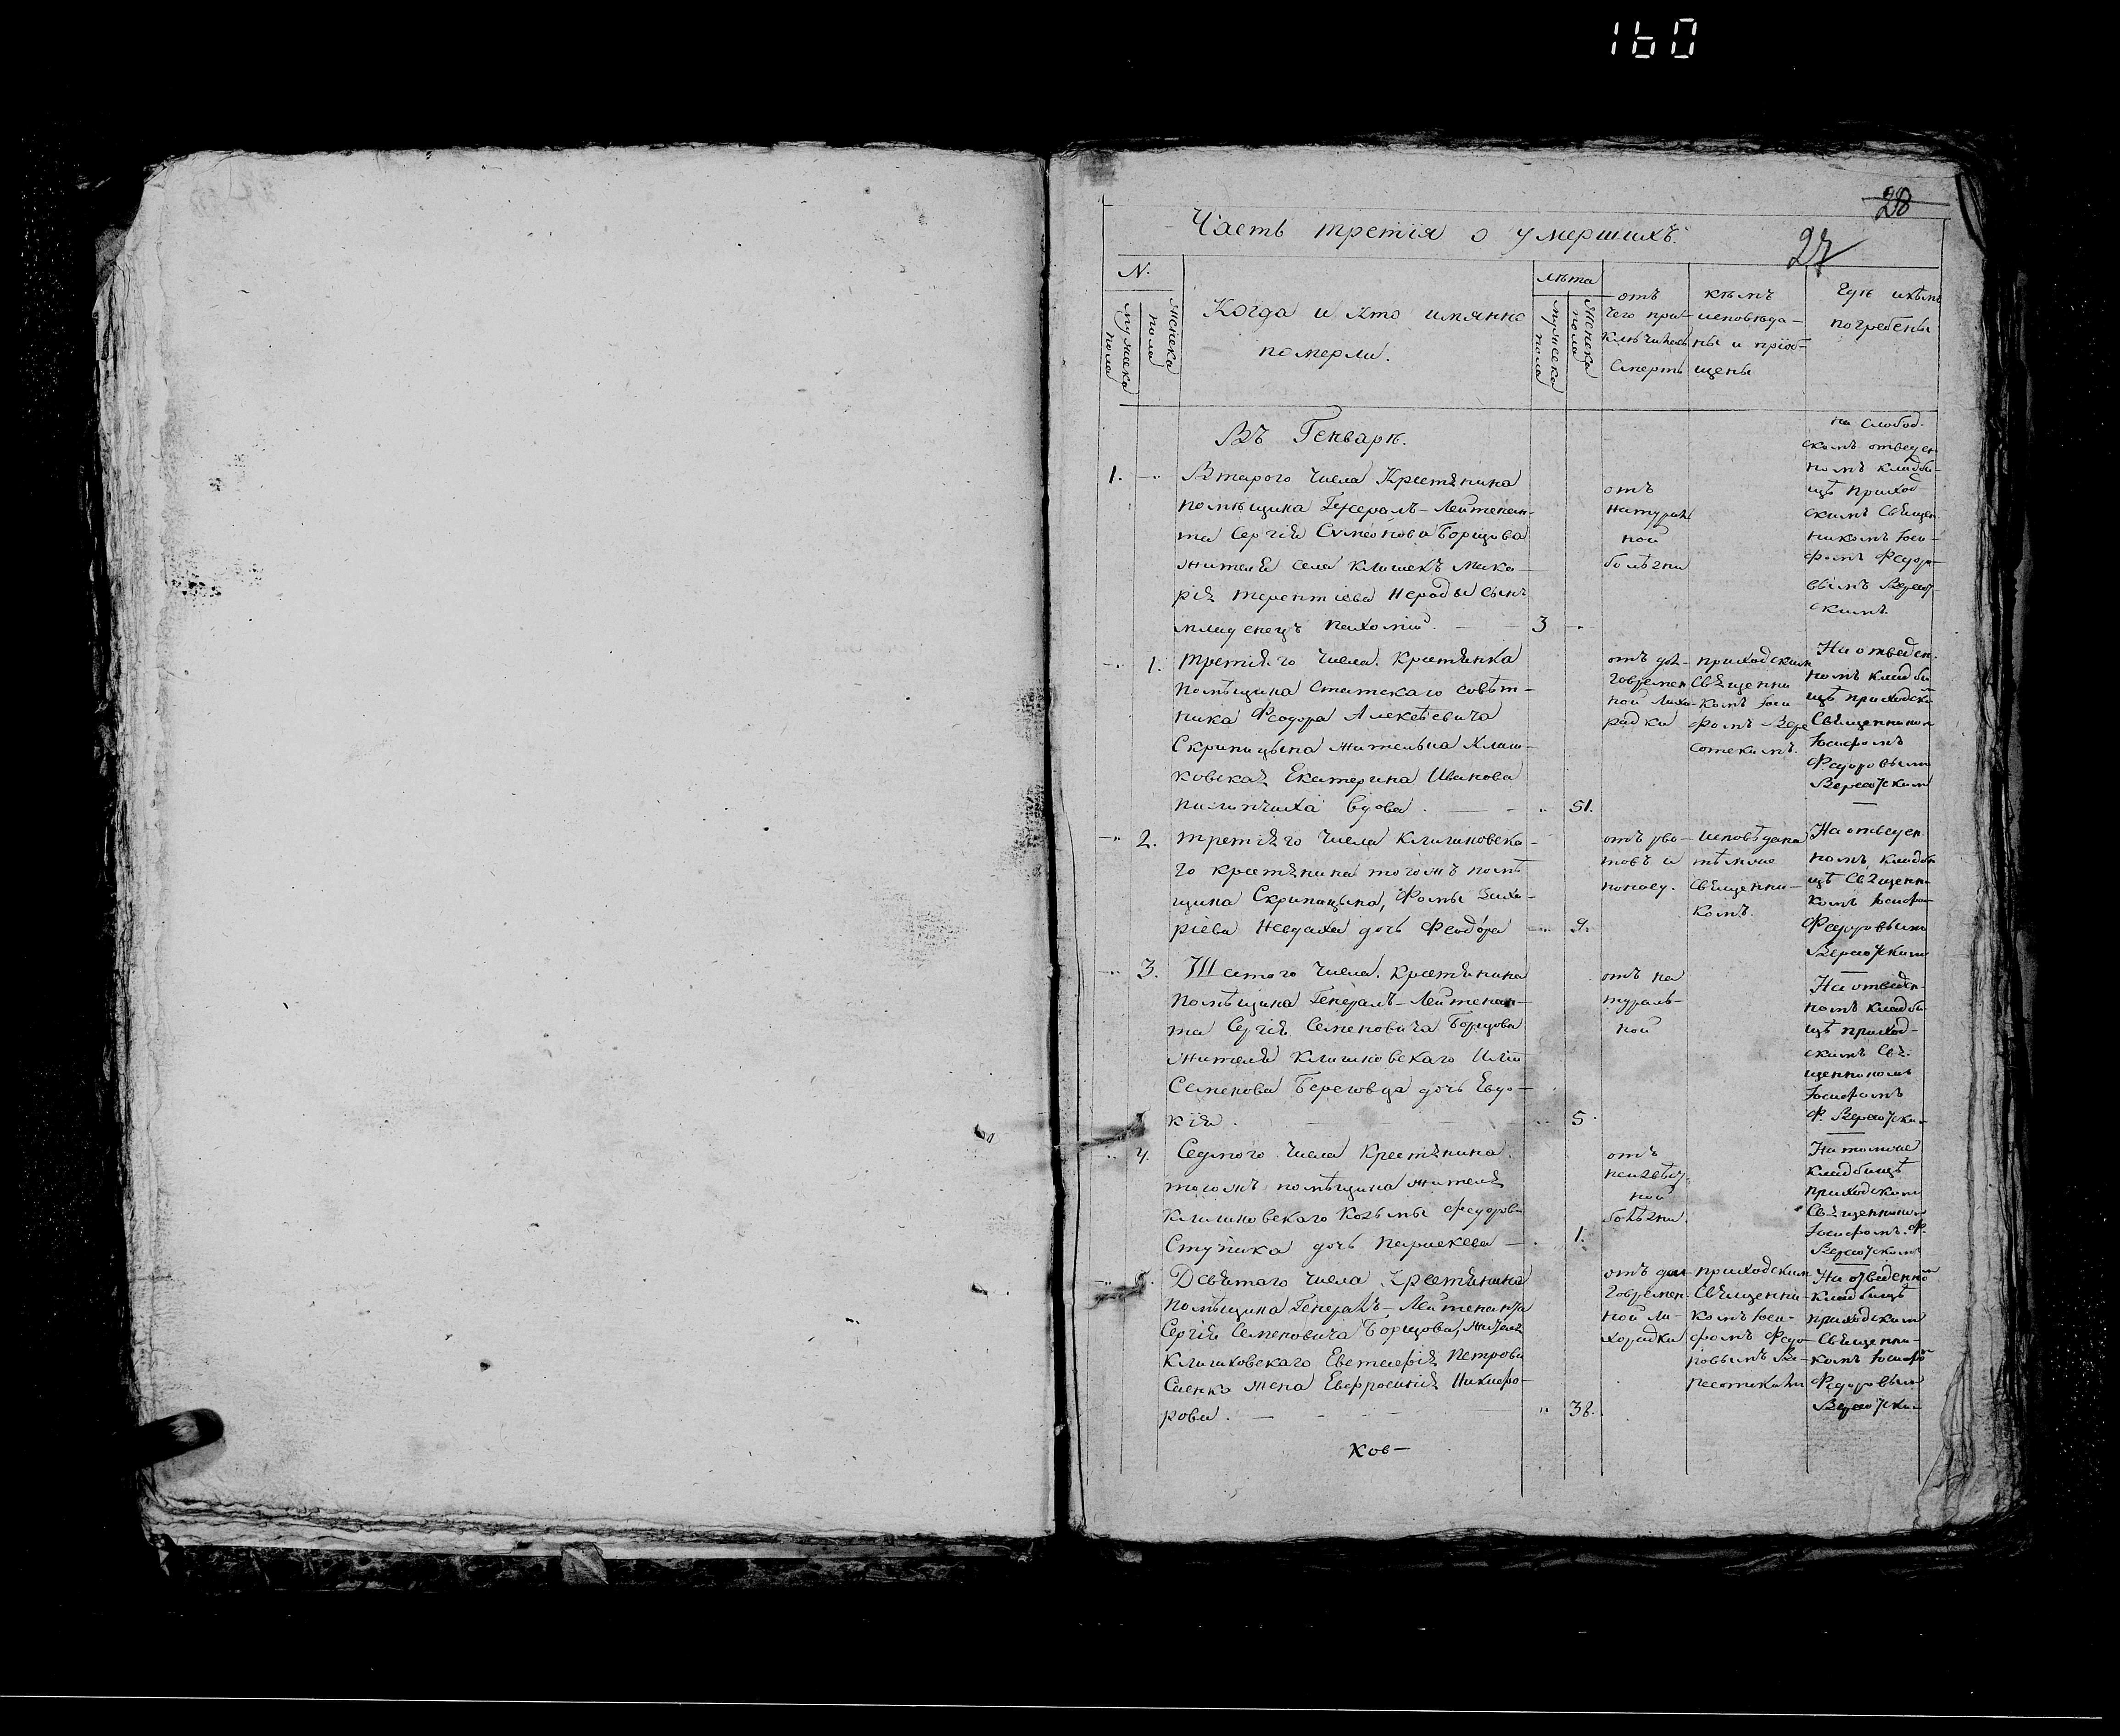 160
28
Часть третія о умершихъ.
27
N.
мужеска пола
женска пола
Когда и кто имянно
померли.
лѣта
мужеска пола
женска пола
отъ
чего при-
ключилась
смерть
кѣмъ
исповѣда-
ны и пріоб-
щены
Гдѣ и кѣмъ
погребены
Въ Генварѣ.
1.
Втораго числа Крестянина
помѣщика Генералъ-Лейтенан-
та Сергія Сѵмеонова Борщова
жителя села Клишекъ Мака-
рія Терентіева Нероды сынъ
младенецъ Пахомій.
3
отъ
натураль
ной
болѣзни
на слобод-
скомъ отведен
номъ кладби-
щѣ приход
скимъ Священ
никомъ Іоси-
фомъ Федор-
вымъ Верест-
скимъ.
1.
третяго числа. Крестянка
помѣщика статскаго совѣт-
ника Феодора Алексѣевича
Скрипицына жителька Клиш-
ковская Екатерина Иванова
вдова.
51.
отъ дол-
говремен
ной лихо-
радки
приходскимъ
Священни
комъ Іоси
фомъ Вере
сотскимъ.
На отведен-
номъ кладби
щѣ приходски
Священником
Іосифомъ
Федоровымъ
2.
третяго числа Клишковска-
го крестянина тогожъ помѣ
щика Скрипицына, Фомы Заха-
ріева дочь Феодора
9.
отъ рво-
товъ и
исповѣдана
тѣмже
Священни-
комъ.
На отведен
номъ кладби
щѣ Священни
комъ Іосифо-
Федоровымъ
3.
Шестого числа. Крестянина
помѣщика Генералъ-Лейтенан-
та Сергія Семеновича Борщова
жителя Клишковскаго Иліи
Семенова Береговца дочь Евдо-
кія.
5
отъ на
тураль-
ной
На отведен-
номъ кладби
щѣ приход-
скимъ Свя-
щенникомъ
Іосифомъ
4.
Седмого числа Крестянина
тогожъ помѣщика жителя
Клишковскаго Козьмы Федорова
Ступака дочь Параскева
1.
отъ
неизвѣст-
ной
болѣзни.
На томже
кладбищѣ
приходским
Священником
Іосифомъ. Ф.
5.
Девятаго числа Крестянина
помѣщика Генералъ-Лейтенанта
Сергія Семеновича Борщова, жителя
Клишковскаго Евстафія Петрова
жена Евфросинія Никифо-
рова.
38.
отъ дол-
говремен-
ной ли-
хорадки
приходским
Священни-
комъ Іоси-
фомъ Федо-
ровымъ Ве-
рестскимъ
На отведенно
кладбищѣ
приходским
Священни-
комъ Іосифо
Федоровым
ков-